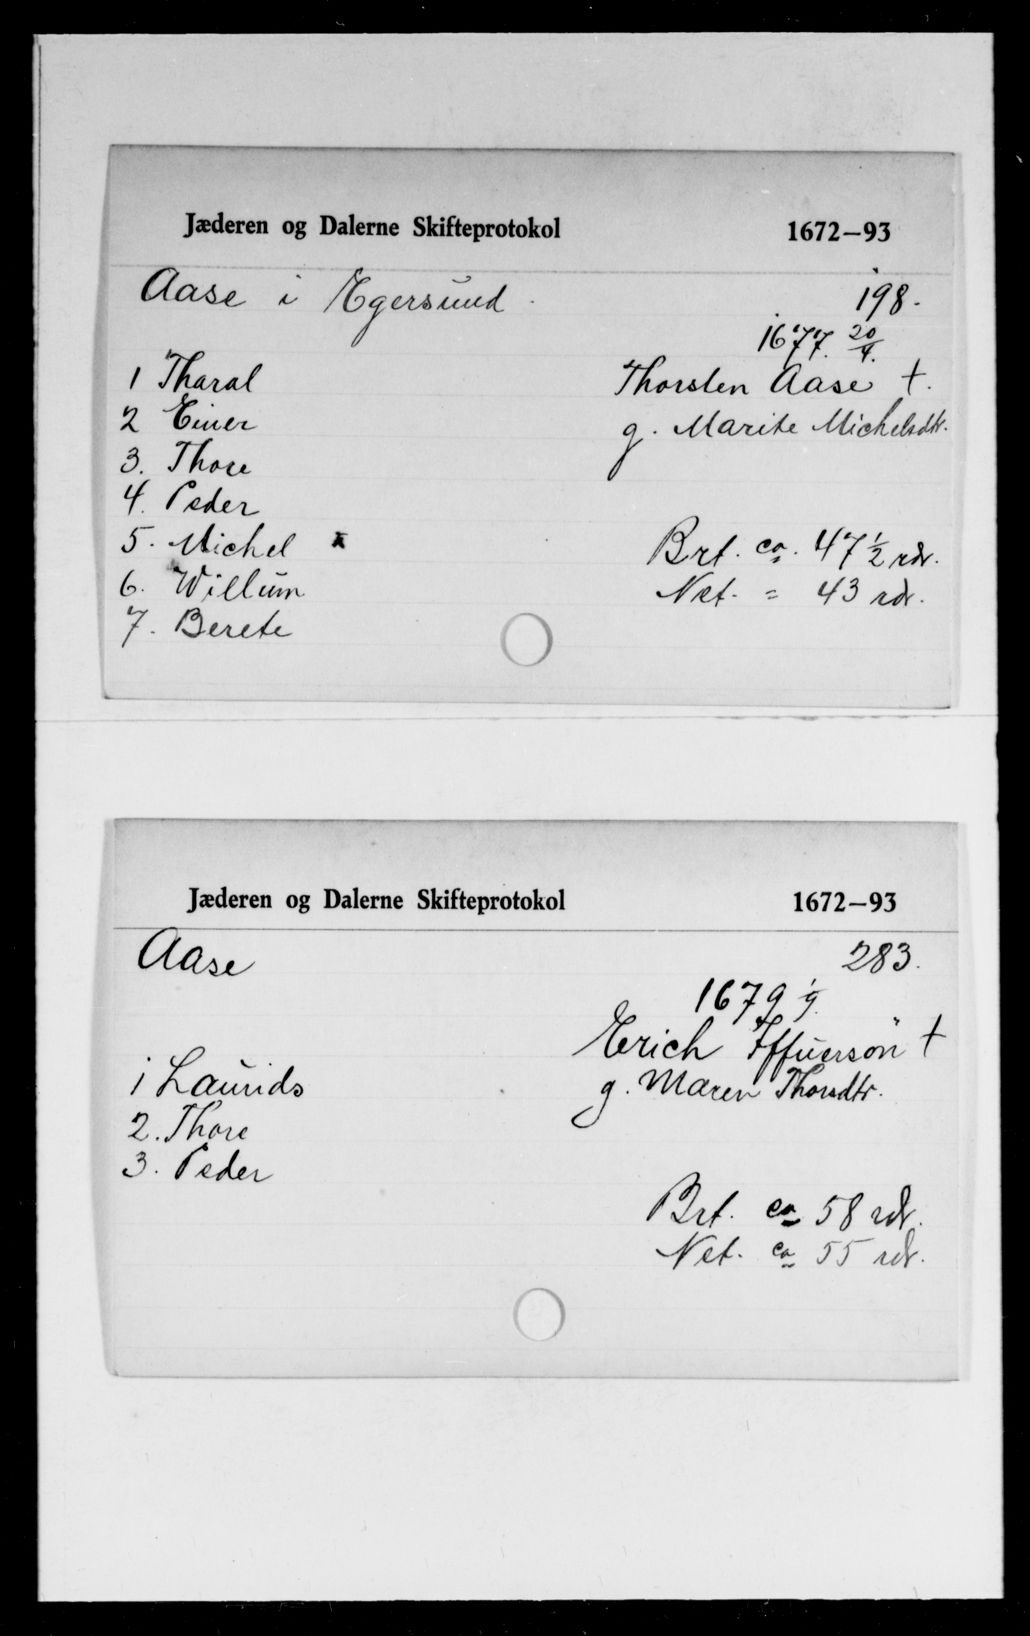 Jæderen og Dalerne Skifteprotokol 1672–93
Aase i Egersund 198.
1677. 20/4.
1 Tharal Thorsten Aase †.
2 Einer g. Marite Michelsdtr.
3. Thore
4. Peder
5. Michel Brt. ca. 47 1/2 rdr.
6. Willum Net. = 43 rdr.
7. Berete
Jæderen og Dalerne Skifteprotokol 1672–93
Aase 283.
1679 1/9.
Erich Iffuersøn †
1 Laurids g. Maren Thorsdtr.
2. Thore
3. Peder
Brt. ca 58 rdr.
Net. ca 55 rdr.